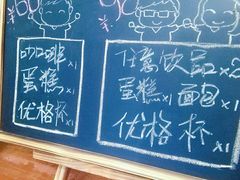 咖啡×1
蛋糕×1
优格杯×1
任意饮品×2
蛋糕×1 面包×1
优格杯×1